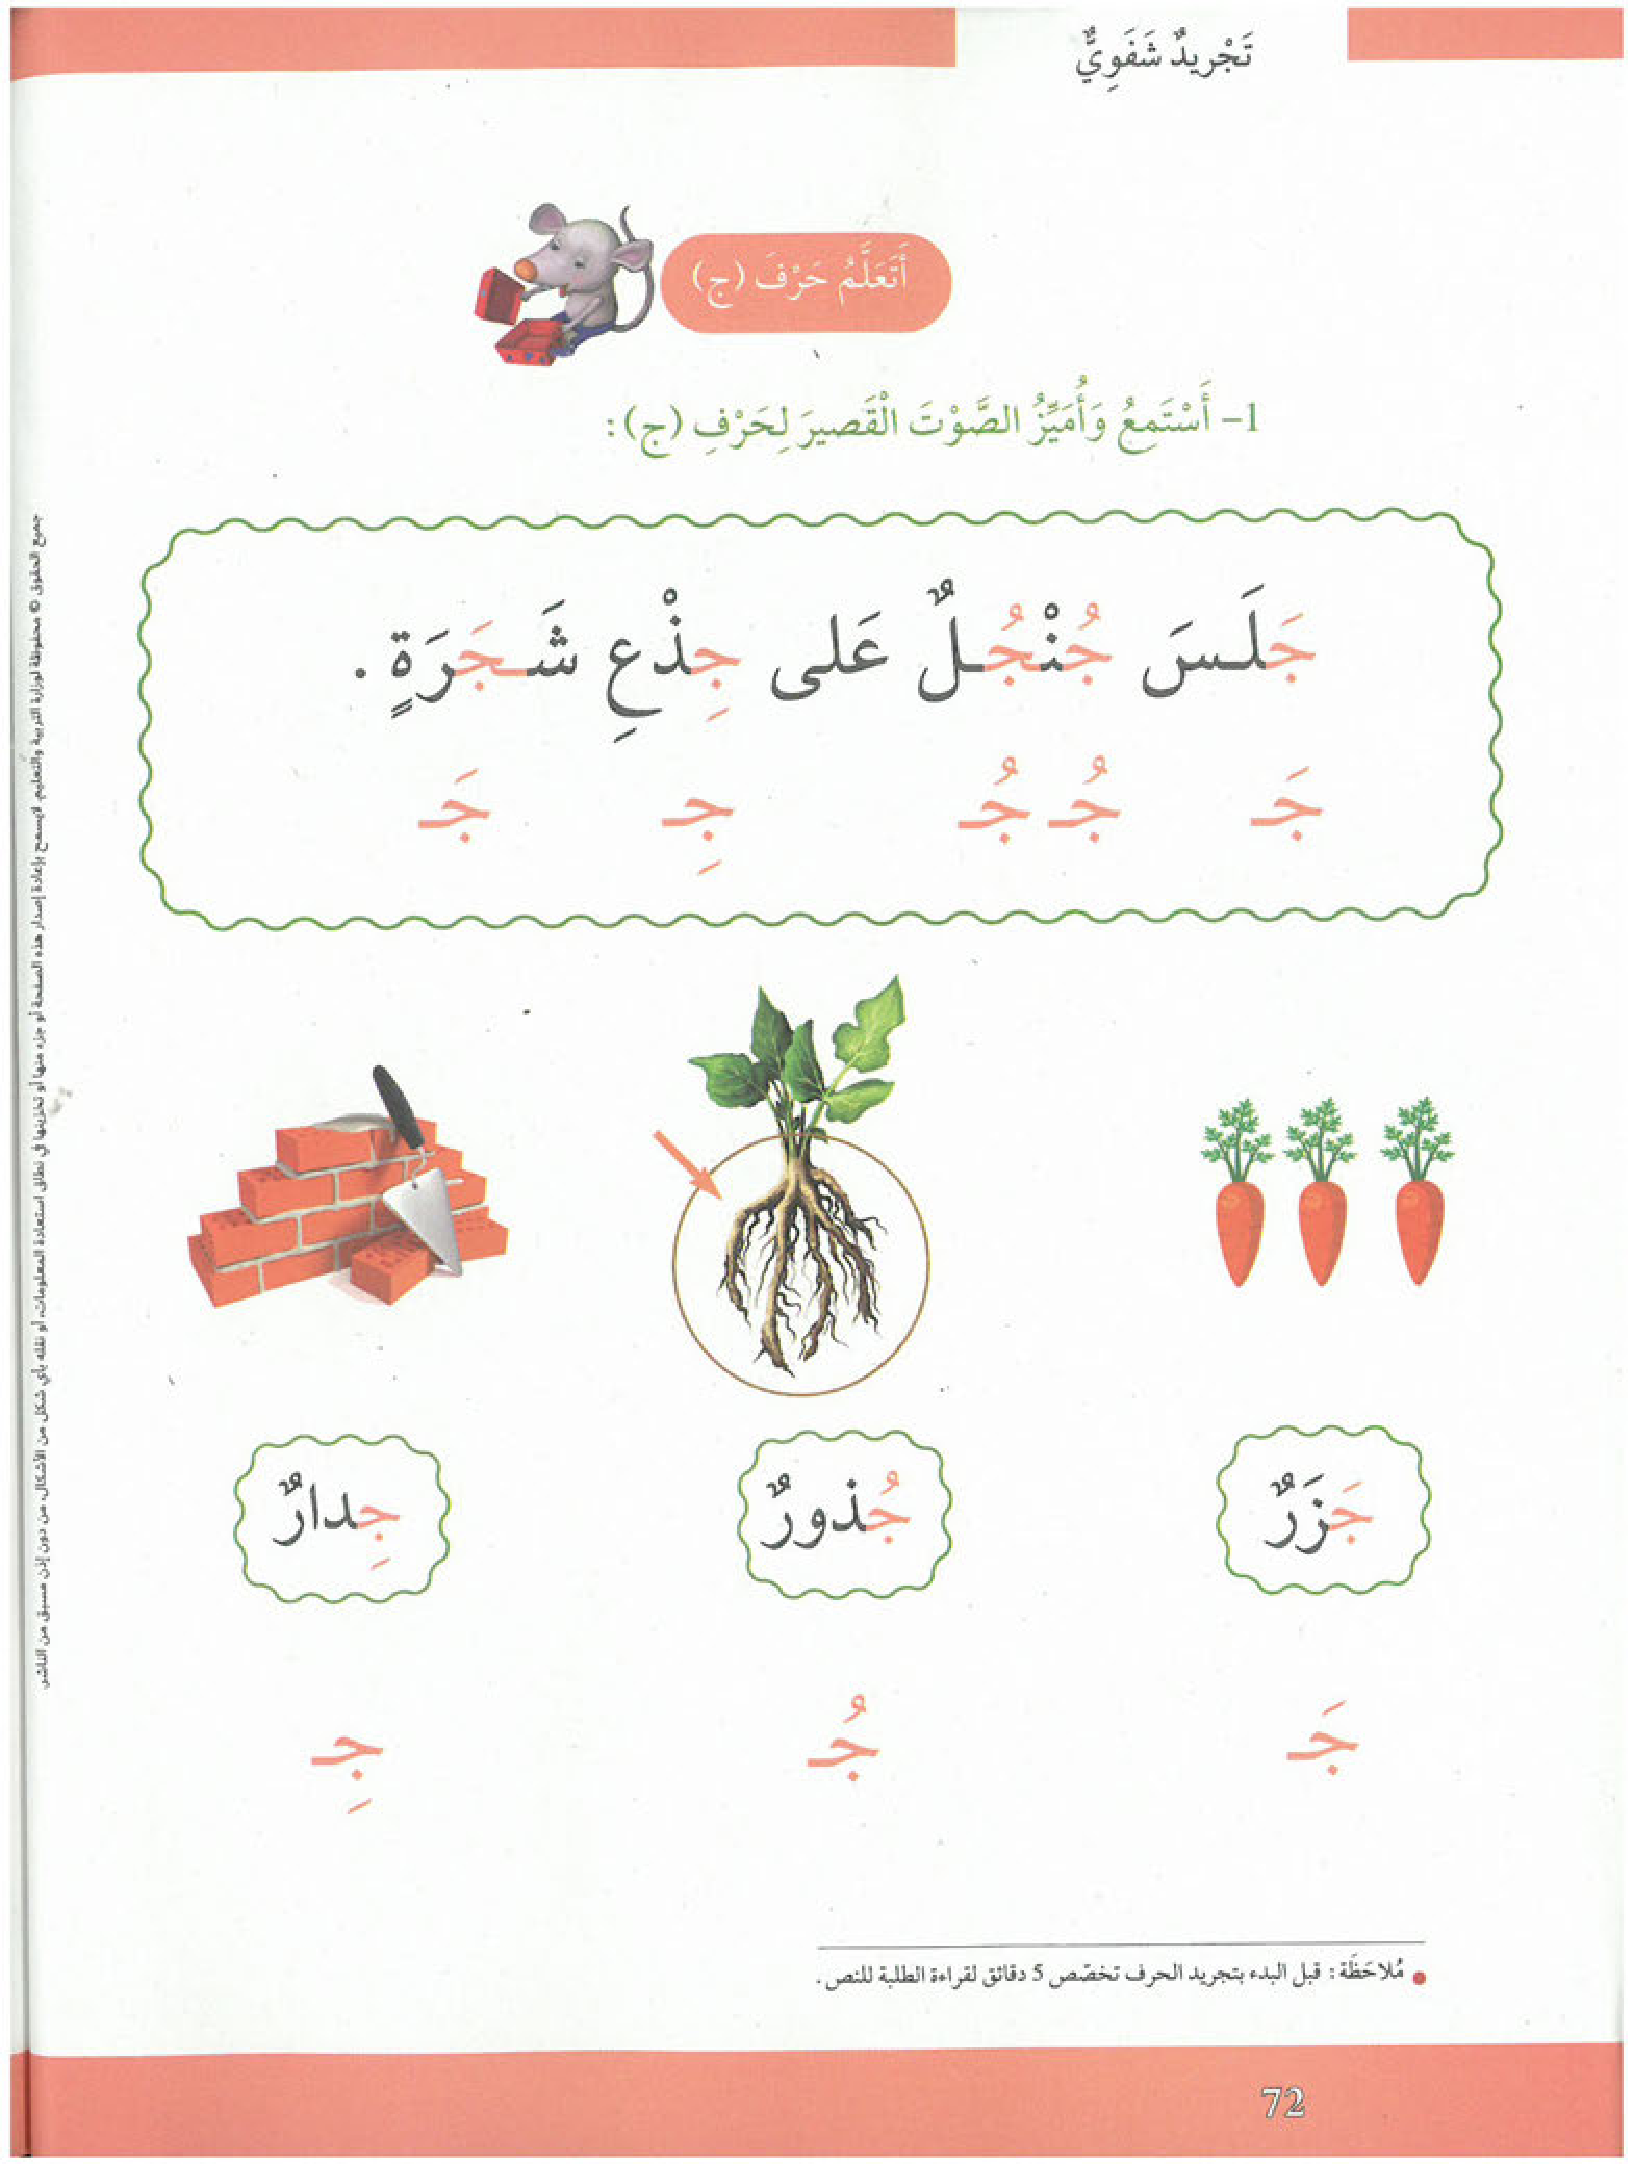 تَجْرِيدٌ شَفَوِيٌّ
أَتَعَلَّمُ حَرْفَ (ج)
1- أَسْتَمِعُ وَأُمَيِّزُ الصَّوْتَ الْقَصيرَ لِحَرْفِ (ج) :
جَلَسَ جُنْجُلٌ عَلى جِذْعِ شَجَرَةٍ .
جَـ جُـ جُـ جِـ جَـ
جَزَرٌ جُذورٌ جِدارٌ
جَـ جُـ جِـ
مُلاحَظَة : قبل البدء بتجريد الحرف تخصّص 5 دقائق لقراءة الطلبة للنص .
72
جميع الحقوق © محفوظة لوزارة التربية والتعليم. لايسمح بإعادة إصدار هذه الصفحة أو جزء منها أو تخزينها في نطاق استعادة المعلومات، أو نقله بأي شكل من الأشكال، من دون إذن مسبق من الناشر.